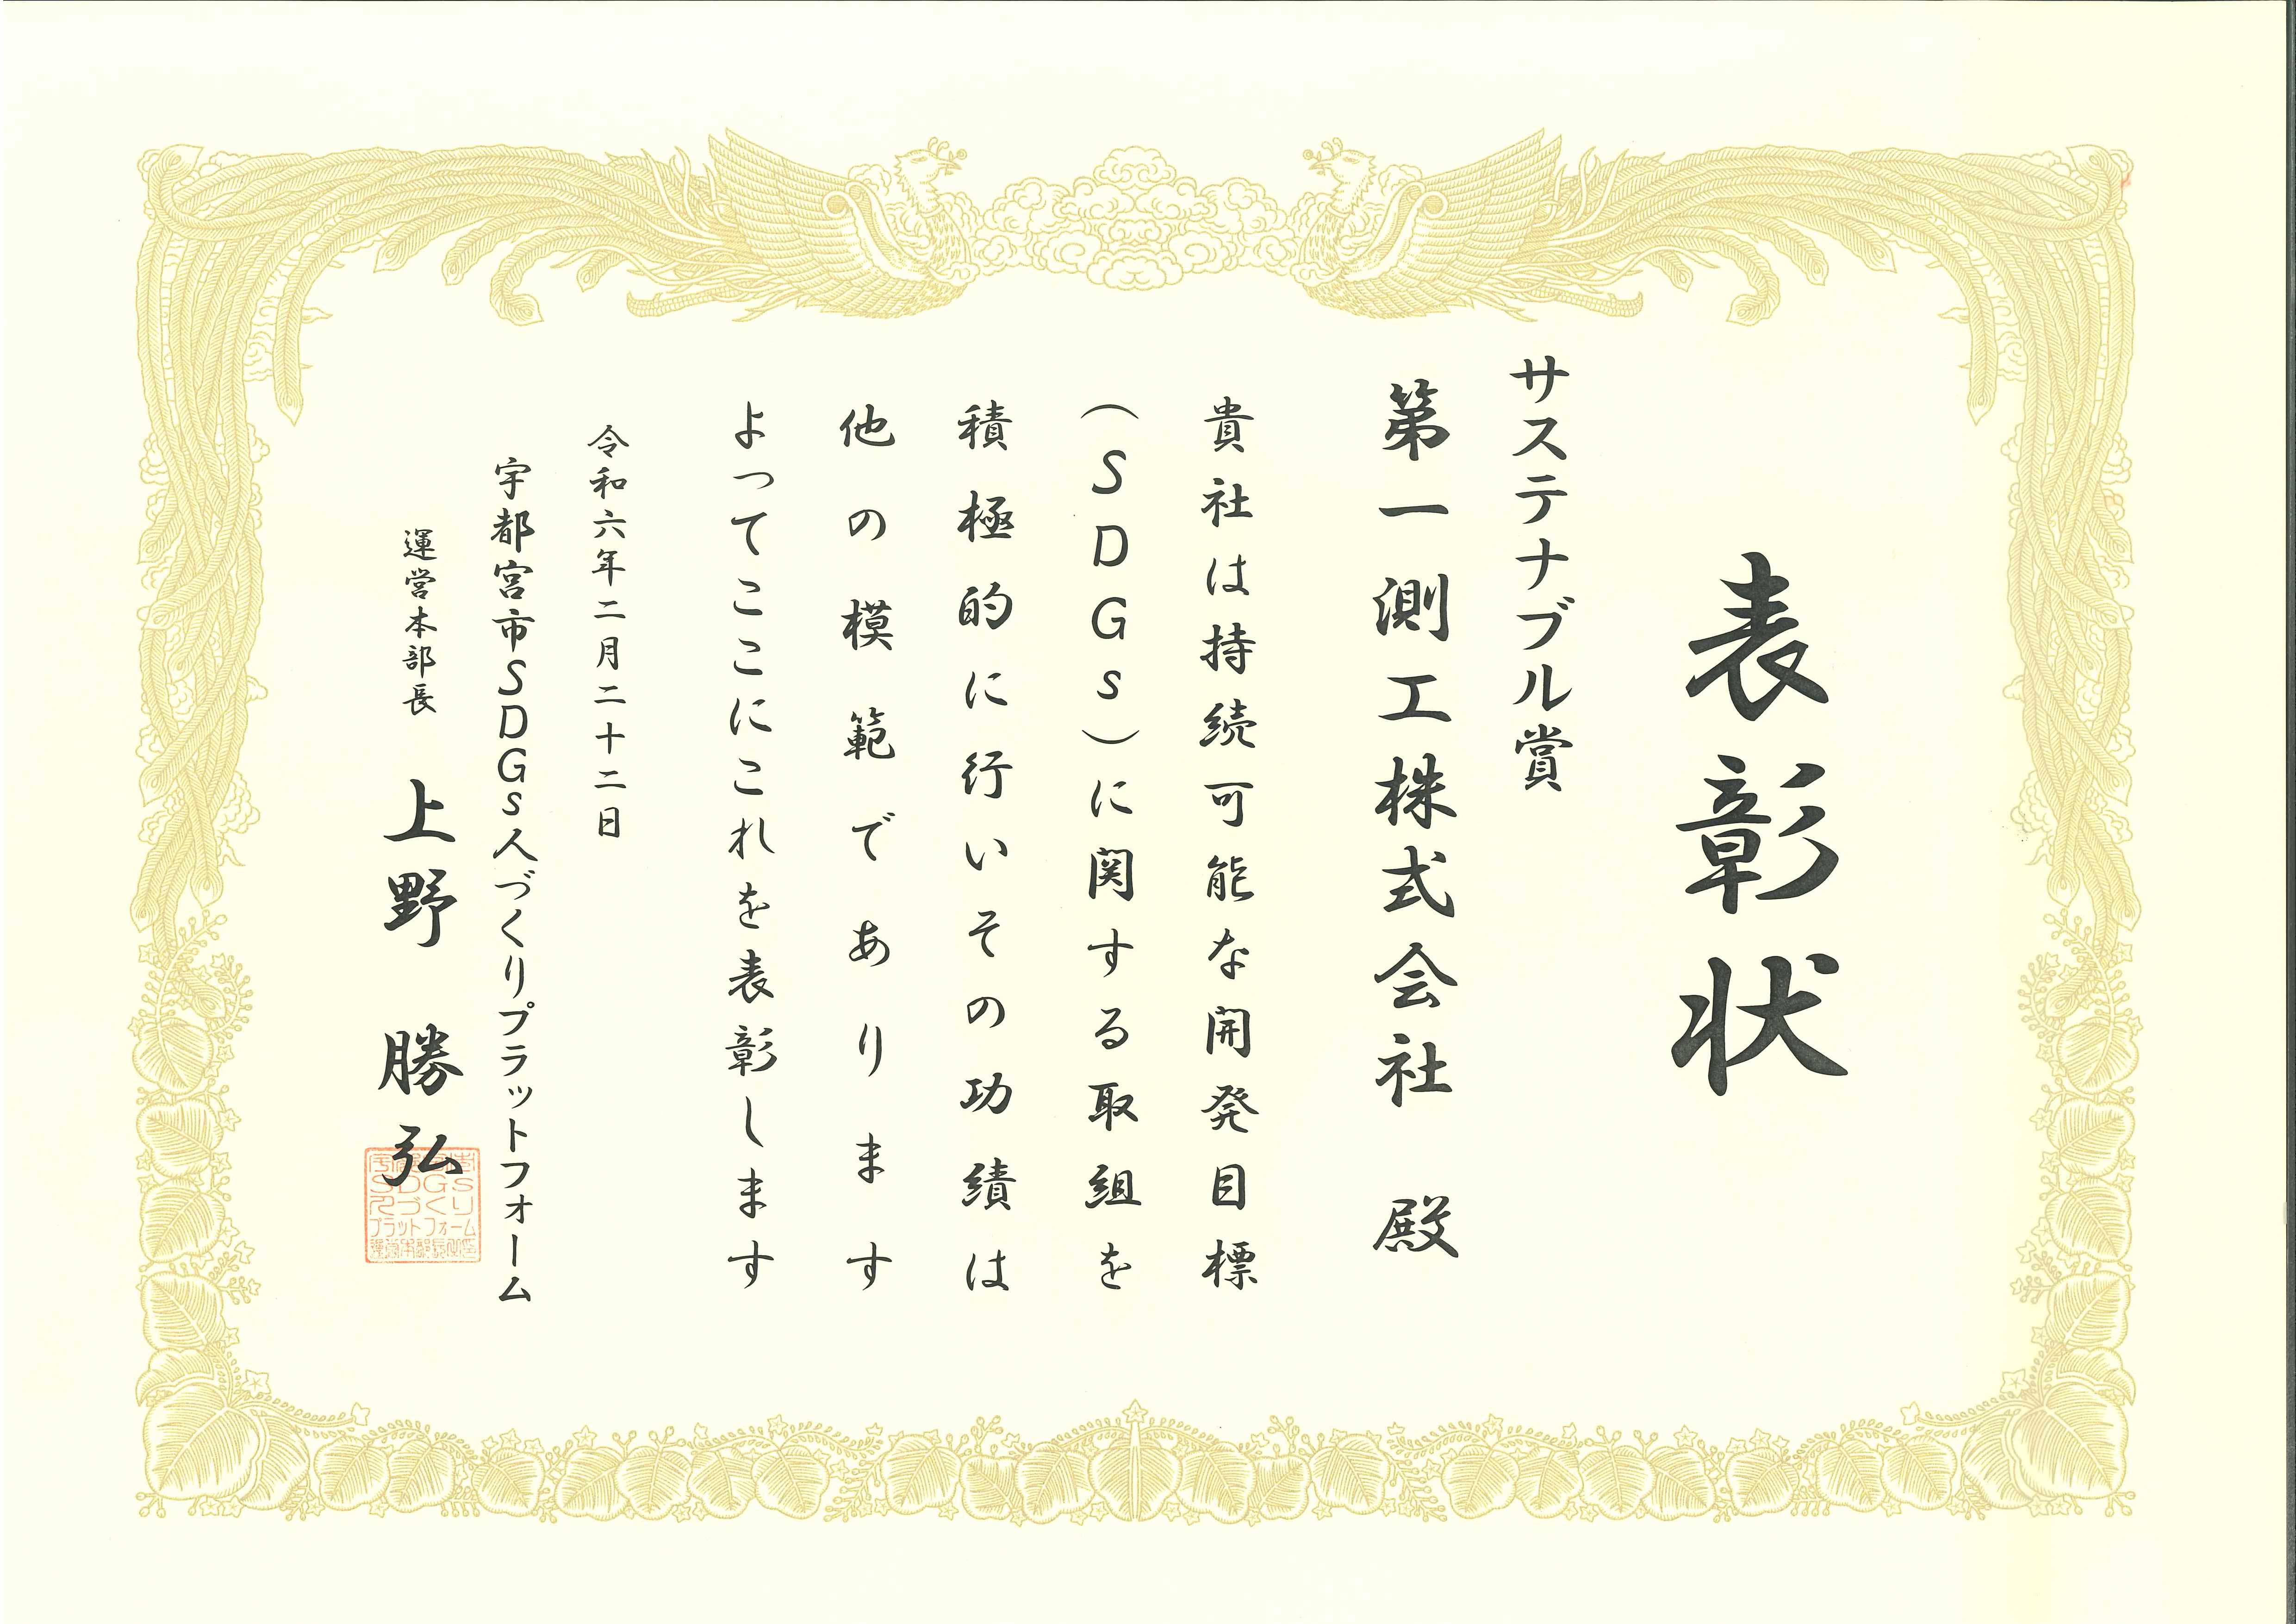 表彰状
サステナブル賞
第一測工株式会社 殿
貴社は持続可能な開発目標
(SDGs)に関する取組を
積極的に行いその功績は
他の模範であります
よってここにこれを表彰します
令和六年二月二十二日
宇都宮市SDGs人づくりプラットフォーム
運営本部長 上野 勝弘
宇都宮市
SDGs
人づくり
プラットフォーム
運営本部長之印